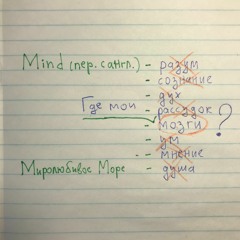 Mind (пер. с англ.) - разум
- сознание
- дух
Где мои - рассудок
- мозги ?
- ум
- мнение
Миролюбивое Море - душа